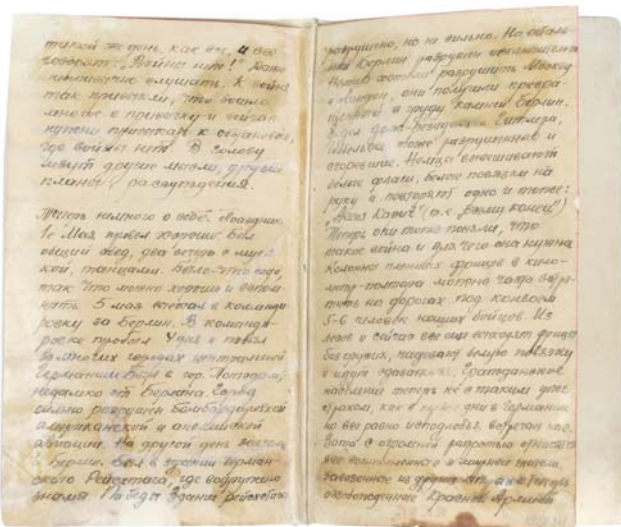 такой же день, как все, и все
говорят: "Войны нет!" Даже
слушать. К войне
так привыкли, что вошло
многое в привычку и сейчас
нужно привыкать к обстановке,
где войны нет. В голову
лезут другие мысли, другие
планы, рассуждения.
Теперь немного о себе. Праздник
1е Мая провел хорошо. Был
общий обед, два вечера с музы
кой, танцами. Было что надо,
так что можно хорошо и вспом
нать. 5 мая в команди
ровку за Берлин. В команди
ровке пробыл 4 дня и побыл
во многих городах центральной
Германии. Был в гор. Потсдам,
недалеко от Берлина. Город
сильно разрушен бомбардировкой
американской и английской
авиации. На другой день заехал
в Берлин. Был в здании герман-
ского Рейхстага, где водружено
знамя Победы. Здание рейхстага
разрушено, но не сильно. На
Берлин разрушен
Немцы хотели разрушить Москву
и они получили превра-
в груду камней Берлин.
Видел дом Гитлера,
тоже разрушенные и
сгоревшие. Немцы вывешивают
белые флаги, белые повязки на
руку и повторяют одно и тоже:
(т.е. конец")
Теперь они тоже поняли, что
такое война и для чего она нужна
Колонны пленных фрицев в кило-
метр-полтора можно часто встре-
тить на дорогах под конвоем
5-6 человек наших бойцов. Из
и сейчас все еще выходят фрицы
без оружия, надевают белую повязку
и идут сдаваться. Гражданское
население теперь не с таким уже
страхом, как в дни в Германии
но все равно встречает нас.
Зато с огромной радостью
все
из других стран
освобожденные Красной Армией